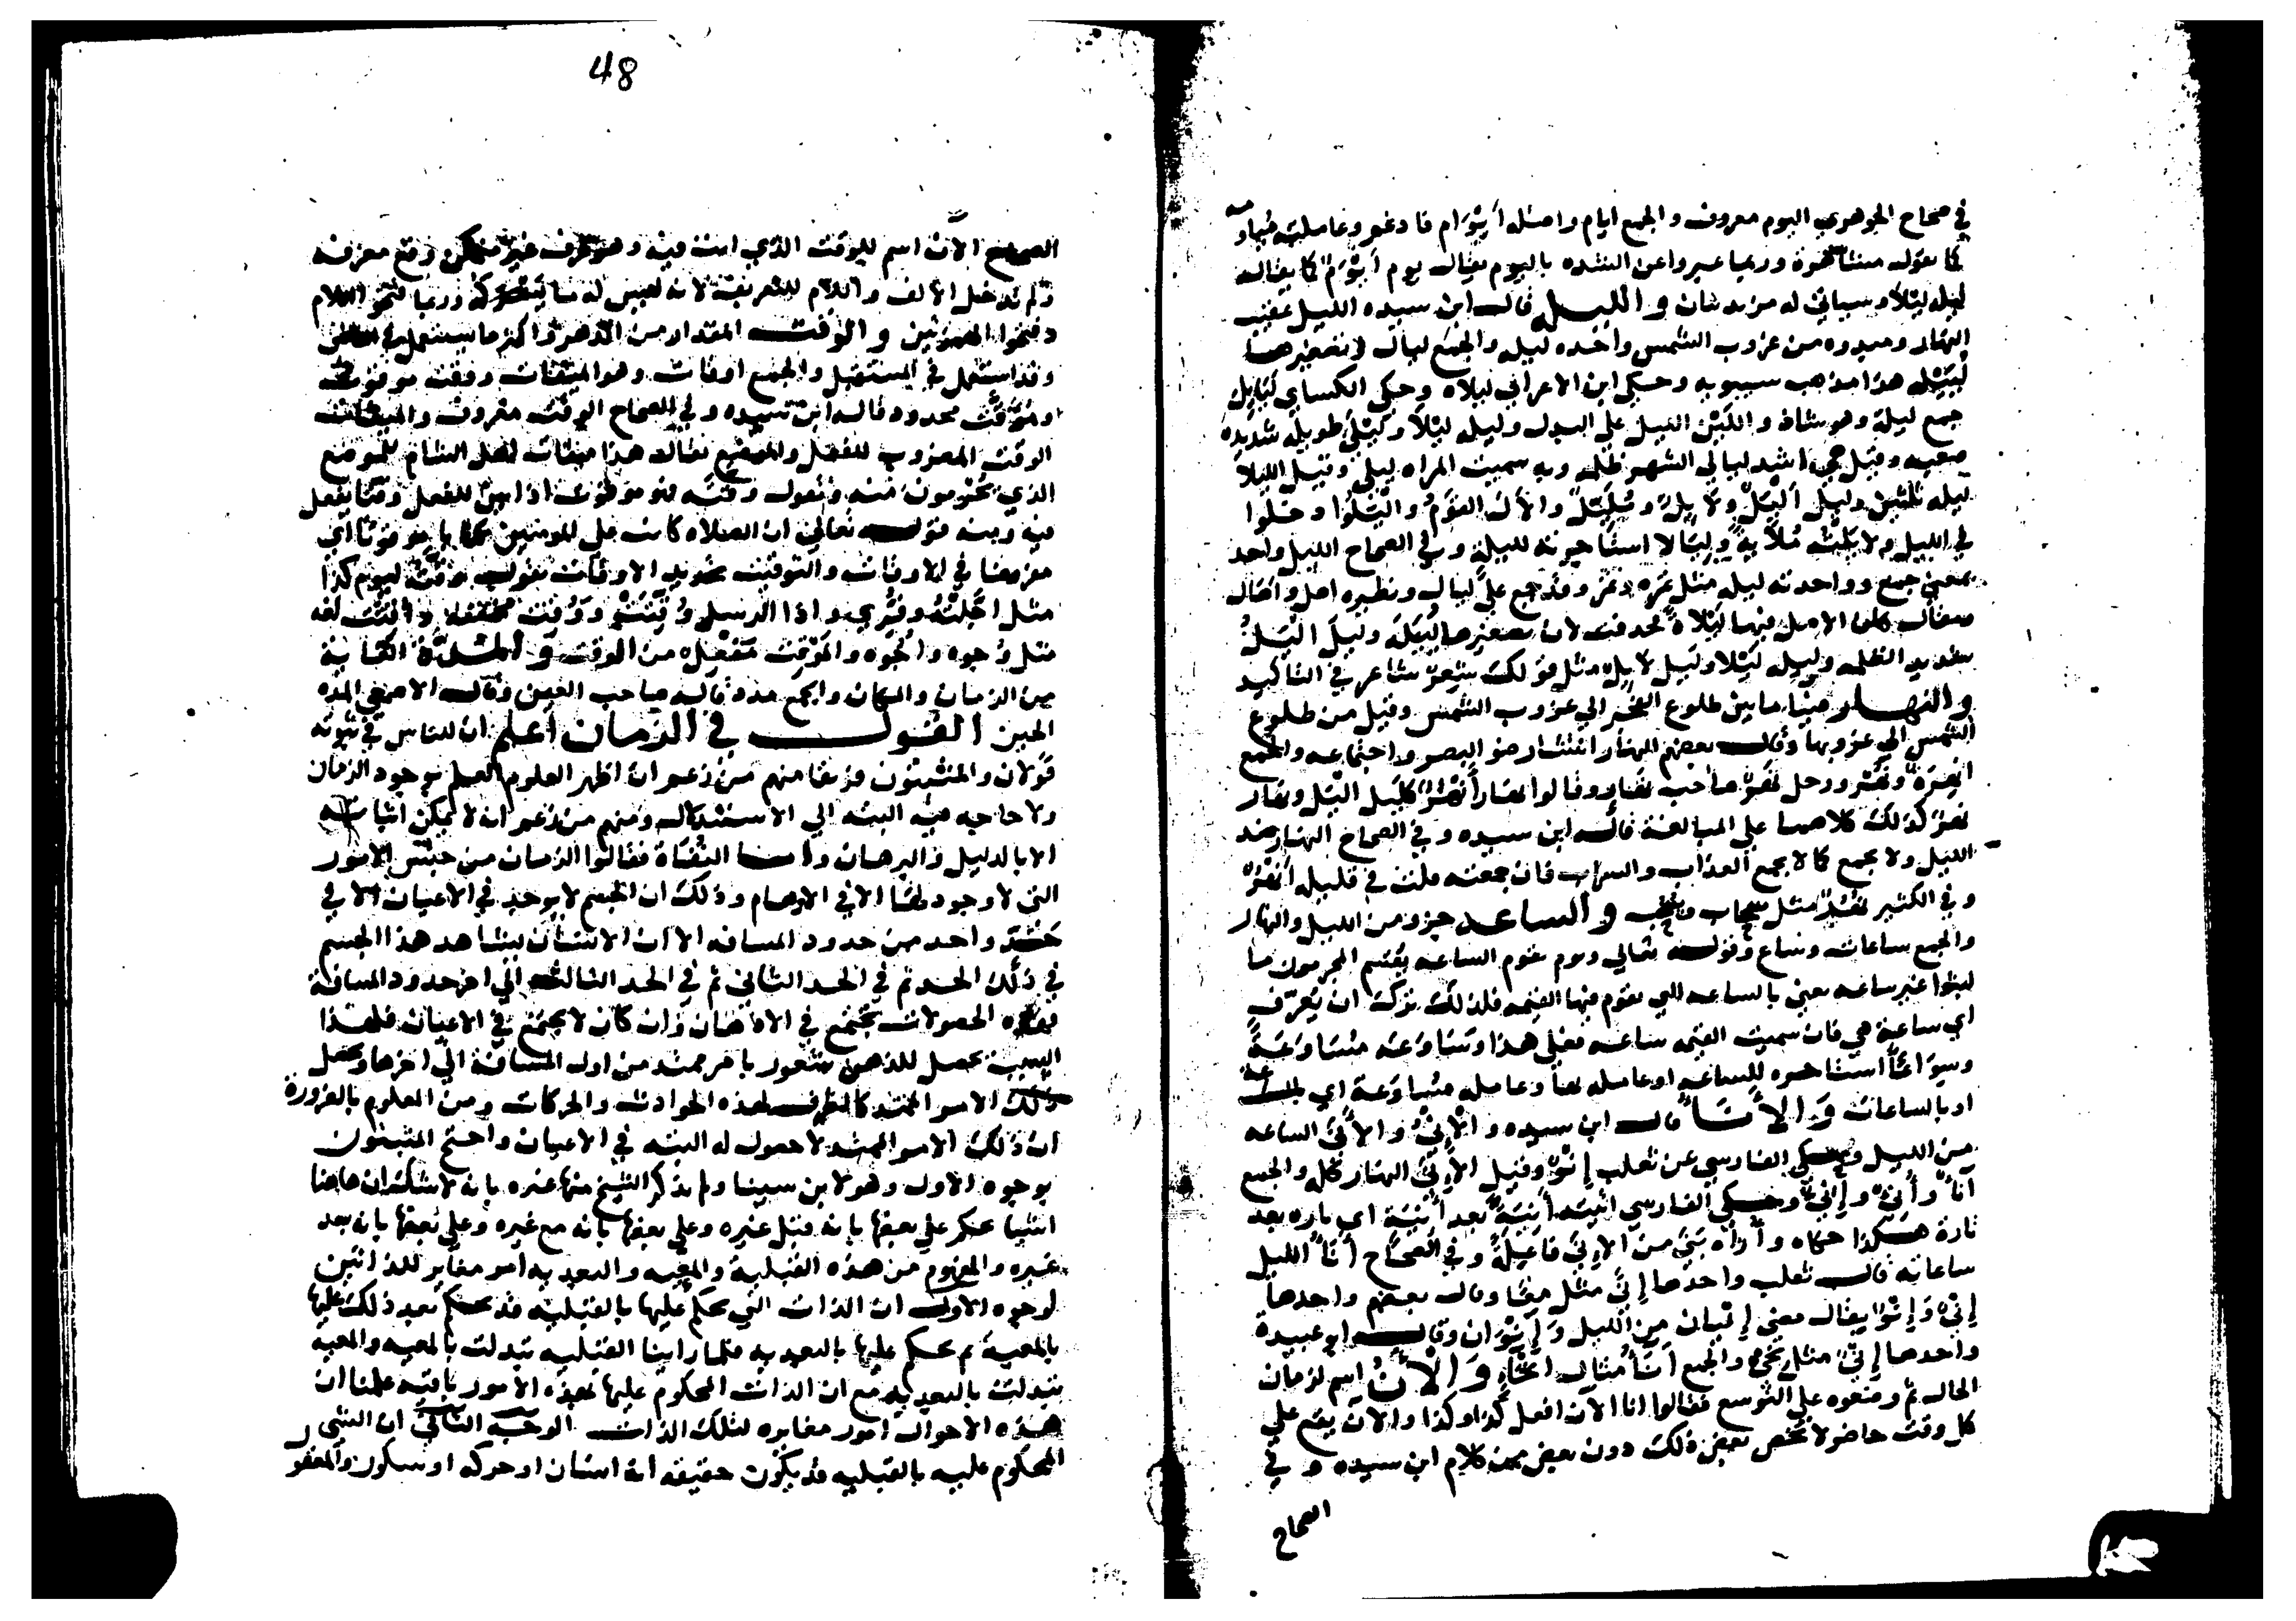 في صحاح الجوهري اليوم معروف والجمع ايام واصله ايوام فادغم وعاملته مياومه
كما تقول مشاهرة وربما عبروا عن الشده باليوم يقال يوم ايوم كما يقال
ليله ليلا وسياتي له مزيد بيان والليل قال ابن سيده الليل عقيب
النهار ومبدوه من غروب الشمس واحده ليله والجمع ليال وتصغيرها
لييليه هذا مذهب سيبويه وحكي ابن الاعرابي ليلاه وحكي الكساي ليايل
جمع ليلة وهو شاذ واللين الليل علي البدل وليله ليلا وليلى طويله شديده
صعبه وقيل هي اشد ليالي الشهر ظلمه وبه سميت المراه ليلى وقيل الليلا
ليله ثلثين وليل اليل ولايل ومليل والال القوم واليلوا دخلوا
في الليل ولايلته ملايلة وليالا استاجرته لليلة وفي الصحاح الليل واحد
بمعني جمع وواحدته ليله مثل تمره وتمر وقد جمع علي ليال ونظيره اهل واهال
ويقال كان الاصل فيها ليلاه فحذفت لان تصغيرها لييليه وليل اليل
شديد الظلمه وليله ليلا وليل لايل مثل قولك شعر شاعر في التاكيد
والنهار ضيا ما بين طلوع الفجر الي غروب الشمس وقيل من طلوع
الشمس الي غروبها وقال بعضهم النهار انتشار ضو البصر واجتماعه والجمع
انهرة ونهر ورجل نهر صاحب نهار وقالوا نهار انهر كليل اليل ونهار
نهر كذلك كلاهما علي المبالغة قاله ابن سيده وفي الصحاح النهار ضد
الليل ولا يجمع كما لا يجمع العذاب والسراب فان جمعته قلت في قليله انهر
وفي الكثير نهر مثل سحاب وسحب والساعه جزو من الليل والنهار
والجمع ساعات وساع وقوله تعالي ويوم تقوم الساعه يقسم المجرمون ما
لبثوا غير ساعه يعني بالساعه التي تقوم فيها القيمه فلذلك ترك ان يعرف
اي ساعة هي فان سميت القيمه ساعه فعلي هذا وساوعه مساوعة
وسواعا استاجره للساعه او عامله بها وعامله مساوعة اي بالساعه
او بالساعات والانا قال ابن سيده والاني والاني الساعه
من الليل وحكي الفارسي عن ثعلب انو وقيل الاني النهار كله والجمع
انا واني واني وحكي الفارسي اتيته انية بعد انية اي تاره بعد
تارة هكذا حكاه واراه بني من الاني فاعلة وفي الصحاح انا الليل
ساعاته قال ثعلب واحدها اني مثل معا وقال بعضهم واحدها
اني وانو يقال مضي انيان من الليل وانوان وقال ابو عبيدة
واحدها اني مثل نحي والجمع انا مثال انحا والان اسم لزمان
الحال ثم وضعوه علي التوسع فقالوا انا الان افعل كذا وكذا والان يقع علي
كل وقت حاضر لا يخص بعض ذلك دون بعض من كلام ابن سيده وفي
الصحاح
48
الصحاح الان اسم للوقت الذي انت فيه وهو ظرف غير متمكن وقع معرفه
ولم تدخل الالف واللام للتعريف لانه ليس له ما يشركه وربما فتحوا اللام
وحذفوا الهمزتين والوقت المقدار من الدهر واكثر ما يستعمل في الماضي
وقد استعمل في المستقبل والجمع اوقات وهو الميقات ووقت موقوت
وموقت محدود قاله ابن سيده وفي الصحاح الوقت معروف والميقات
الوقت المضروب للفعل والموضع يقال هذا ميقات اهل الشام للموضع
الذي يحرمون منه وتقول وقته فهو موقوت اذا بين للفعل وقتا يفعل
فيه ومنه قوله تعالي ان الصلاه كانت علي المومنين كتابا موقوتا اي
مفروضا في الاوقات والتوقيت تحديد الاوقات تقول وقته ليوم كذا
مثل اجلته وقري واذا الرسل وقتت ووقتت مخففه واقتت لغه
مثل وجوه واجوه والموقت مفعل من الوقت والمدة الغاية
من الزمان والمكان والجمع مدد قاله صاحب العين وقال الاصمعي المده
الحين القول في الزمان اعلم ان للناس في ثبوته
قولان والمثبتون فرقا منهم من زعم ان اظهر العلوم العلم بوجود الزمان
ولا حاجه فيه البته الي الاستدلال ومنهم من زعم انه لا يمكن اثباته
الا بالدليل والبرهان واما النفاة فقالوا الزمان من جنس الامور
التي لا وجود لها الا في الاوهام وذلك ان الجسم لا يوجد في الاعيان الا في
حد واحد من حدود المسافه الا ان الانسان يشاهد هذا الجسم
في ذلك الحد ثم في الحد الثاني ثم في الحد الثالث الي اخر حدود المسافة
فهذه الحصولات تجتمع في الاذهان وان كان لا يجتمع في الاعيان فلهذا
السبب يحصل للذهن شعور بامر ممتد من اول المسافة الي اخرها وجعل
ذلك الامر الممتد كالظرف لهذه الحوادث والحركات ومن المعلوم بالضرورة
ان ذلك الامر الممتد لا حصول له البته في الاعيان واحتج المثبتون
بوجوه الاول وهو لابن سينا ولم يذكر الشيخ منها غيره بانه لا شك ان هاهنا
اشيا يحكم علي بعضها بانه قبل غيره وعلي بعضها بانه مع غيره وعلي بعضها بانه بعد
غيره والمفهوم من هذه القبلية والمعيه والبعديه امر مغاير للذاتين
لوجوه الاول ان الذات التي يحكم عليها بالقبليه قد يحكم بعد ذلك عليها
بالمعية ثم يحكم عليها بالبعديه فلما راينا القبليه تبدلت بالمعيه والمعيه
تبدلت بالبعديه مع ان الذات المحكوم عليها بهذه الامور باقيه علمنا ان
هذه الاحوال امور مغايره لتلك الذات الوجه الثاني ان الشي
المحكوم عليه بالقبليه قد يكون حقيقه انه انسان او حركه او سكون والمفهو